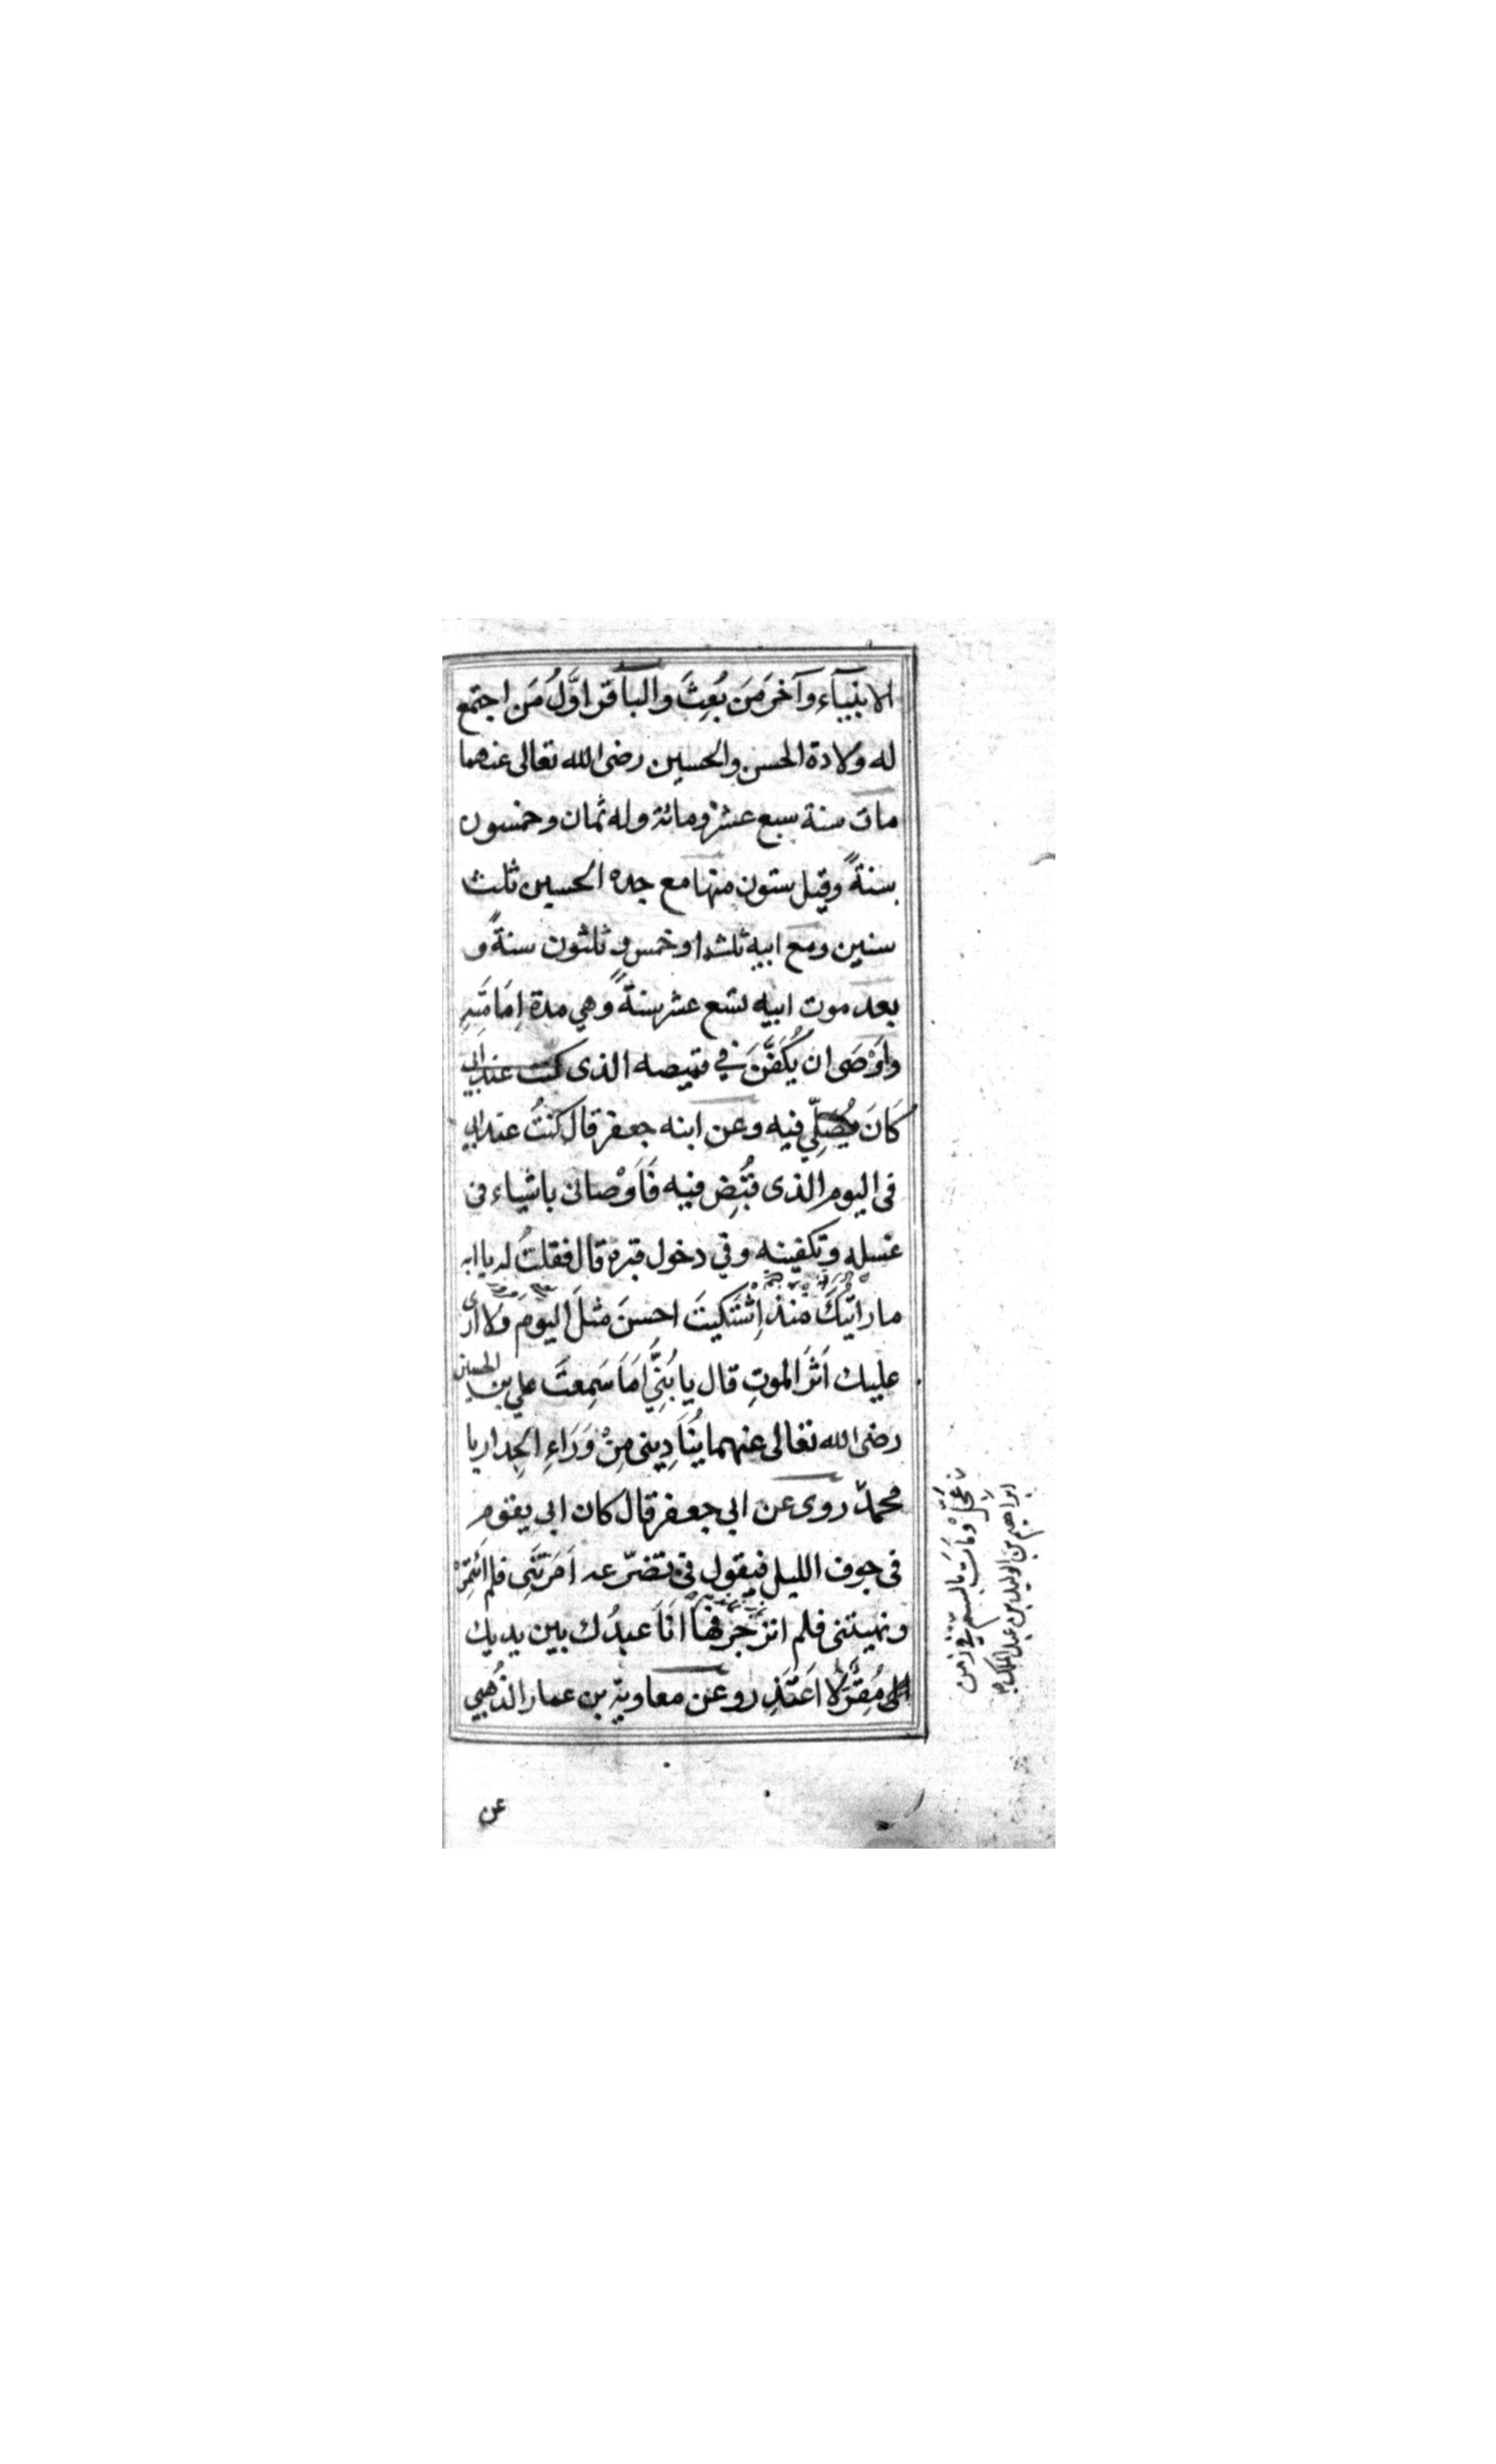 الانبيآء وآخرَ مَن بُعِثَ والبآقر اوَّلُ مَن اجتمع
له ولادة الحسن والحسين رضى الله تعالى عنهما
مات سنة سبع عشر ومائة وله ثمان وخمسون
سنةً وقيل ستون منها مع جده الحسين ثلث
سنين ومع ابيه ثلثا او خمس و ثلثون سنةً و
بعد موت ابيه تسع عشر سنةً وهي مدة اِمَامَتِهِ
واَوْصَى ان يُكَفَّنَ في قميصه الذى كنت عند ابى
كَانَ يُصَلِّي فيه وعن ابنه جعفر قال كنتُ عند ابي
فى اليوم الذى قُبِضَ فيه فَاَوْصانى باشياء فى
غسلِه وتكفينه وفي دخول قبره قال فقلتُ له يا ابه
ما رايتُكَ منذ اِشْتَكيتَ احسنَ مثلَ اليوم وَلا ارى
عليك اَثَرَ الموتِ قال يا بُنَيَّ اَمَا سَمِعتَ علي بن الحسين
رضى الله تعالى عنهما يُنَادِينى مِنْ وَرَاءِ الجِدار يا
محمدُ روى عن ابي جعفر قال كان ابي يقوم
فى جوف الليل فيقول فى تضرّعه اَمَرْتَنِى فلم ائتمِرْ
ونهيتنى فلم انزجر فها اَنَا عبدُك بين يديك
مُقِرٌّ لا اَعتَذِر وعن معاوية بن عمار الذُهبي
عن
ومات بالسم في زمن
ابراهيم بن الوليد بن عبد الملك